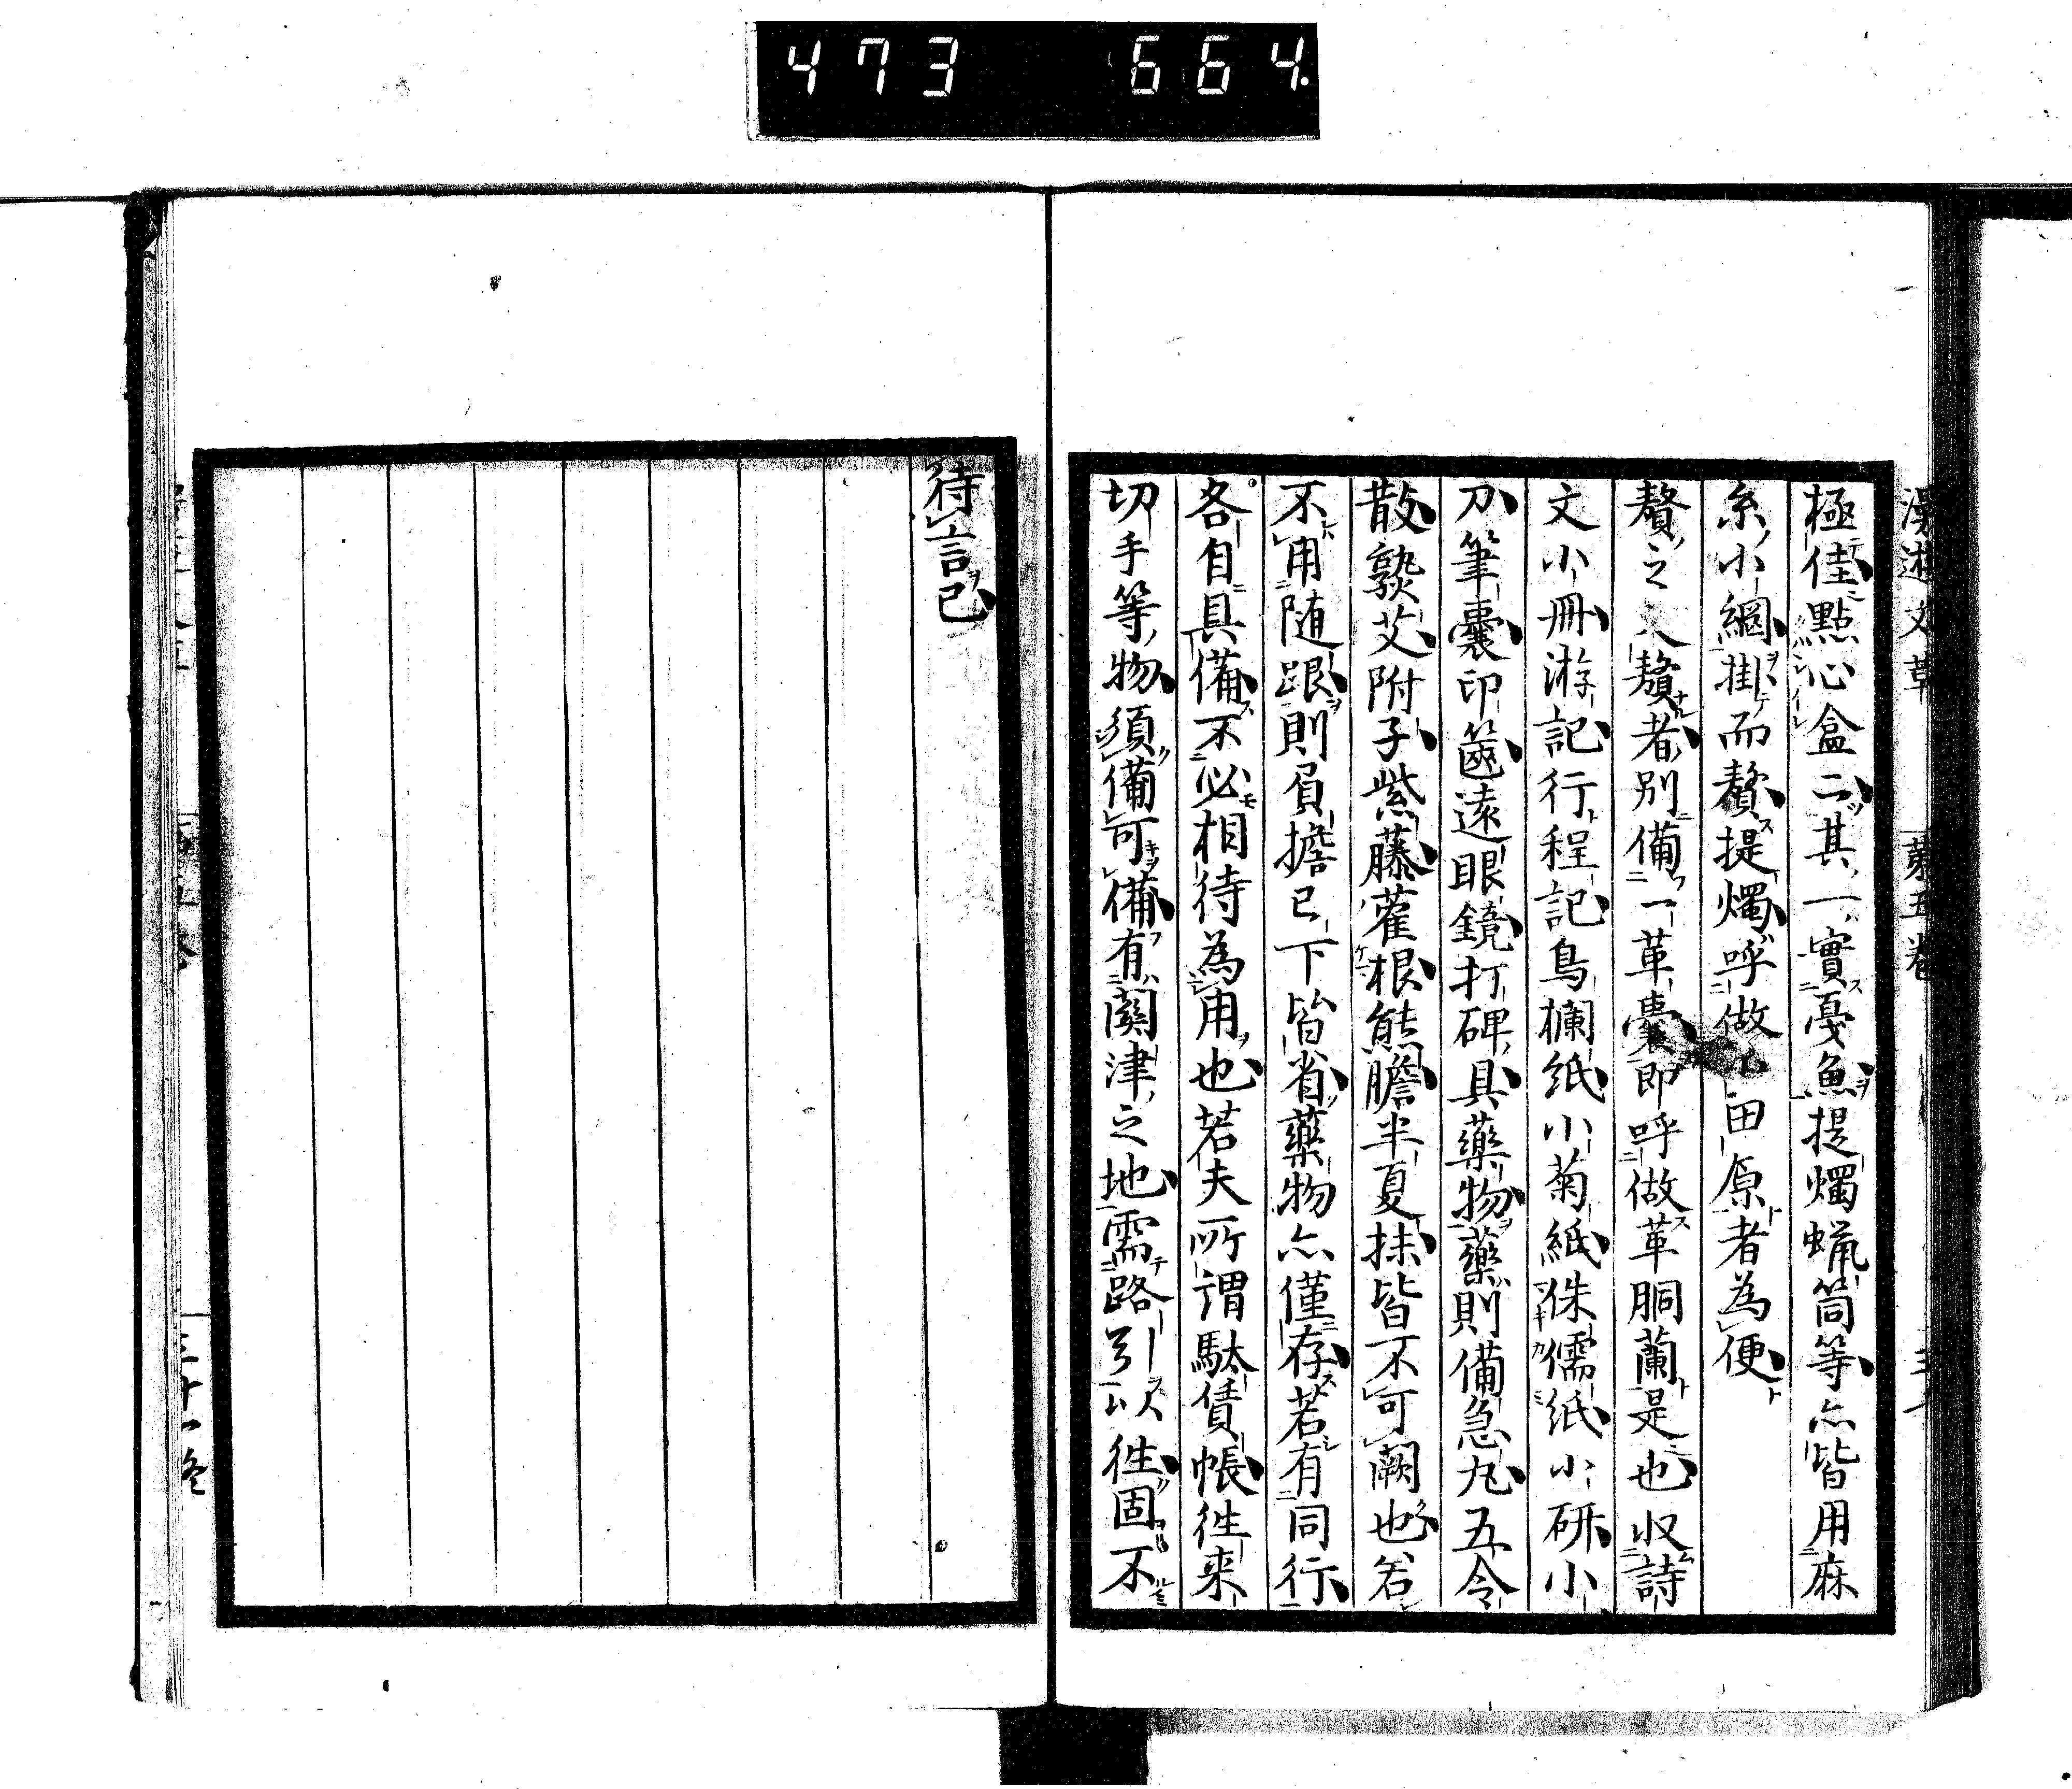 473 664
漫遊文草 第五卷
極佳點心盒二其一實戞魚提燭蝋筒等亦皆用麻
糸小網掛而贅提燭呼做小田原者為便
贅之又贅者別備一革囊即呼做革胴蘭是也収詩
文小冊游記行程記烏欄紙小菊紙侏儒紙小研小
刀筆囊印篋遠眼鏡打碑具藥物藥則備急丸五令
散熟艾附子紫藤藿根熊膽半夏抹皆不可闕也若
不用随跟則肩擔已下皆省藥物亦僅存若有同行
各自具備不必相待為用也若夫所謂駄賃帳往来
切手等物須備可備有関津之地需路引以往固不
待言已